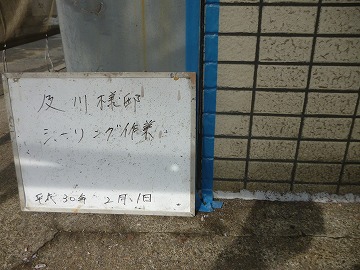 及川様邸
シーリング作業
平成30年 2月1日